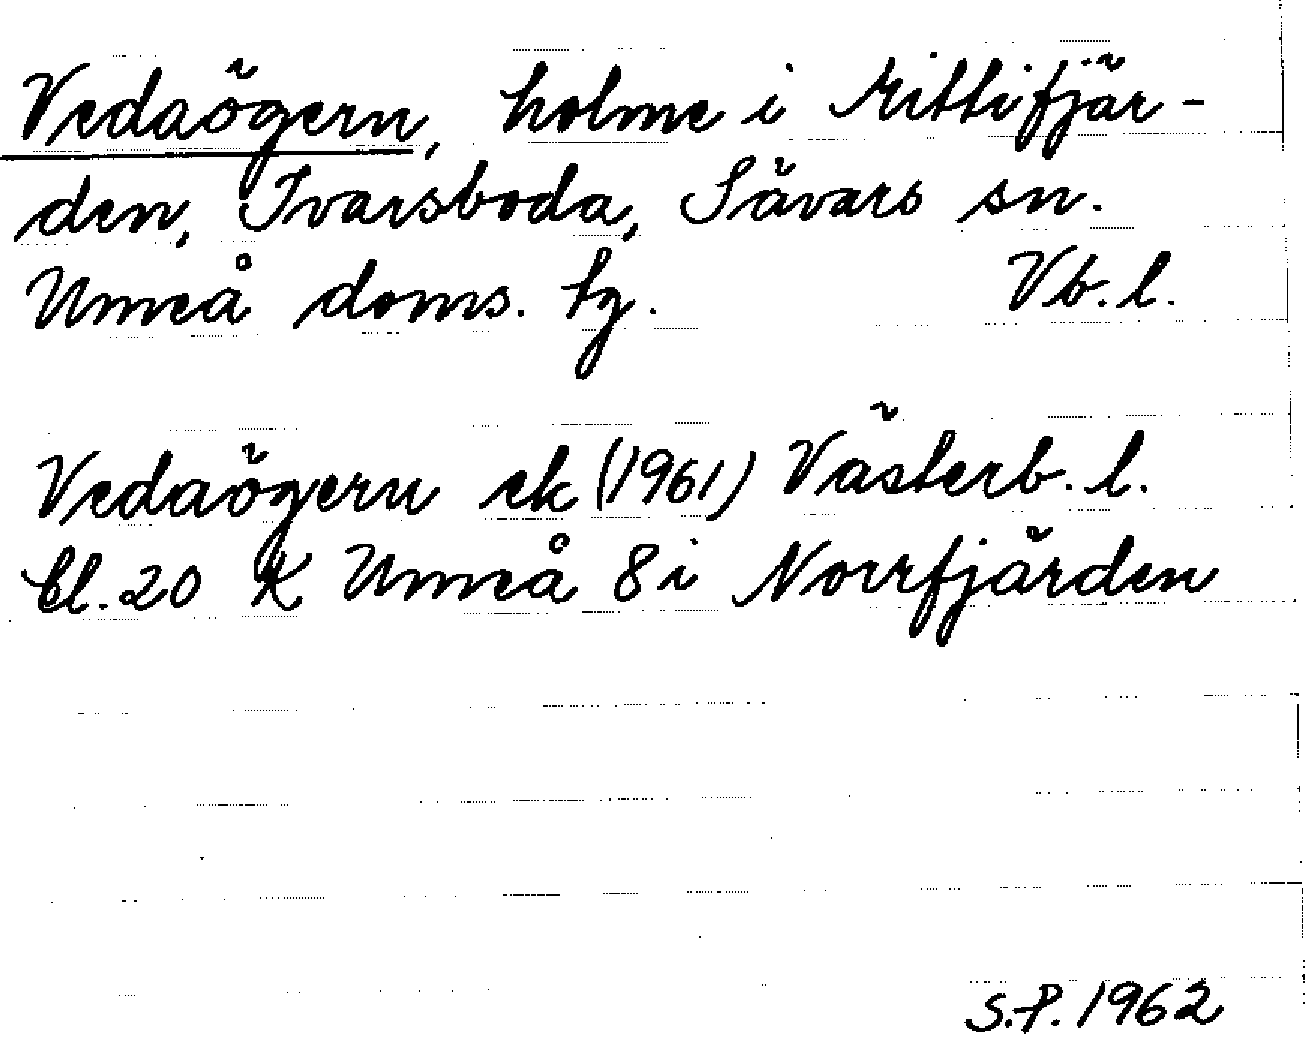 Vedaögern, holme i Mittifjär-
den, Ivarsboda, Sävars sn.
Umeå doms. tg. Vb. l.
Vedaögern ek (1961) Västerb. l.
bl. 20 K Umeå 8 i Norrfjärden
S.P. 1962